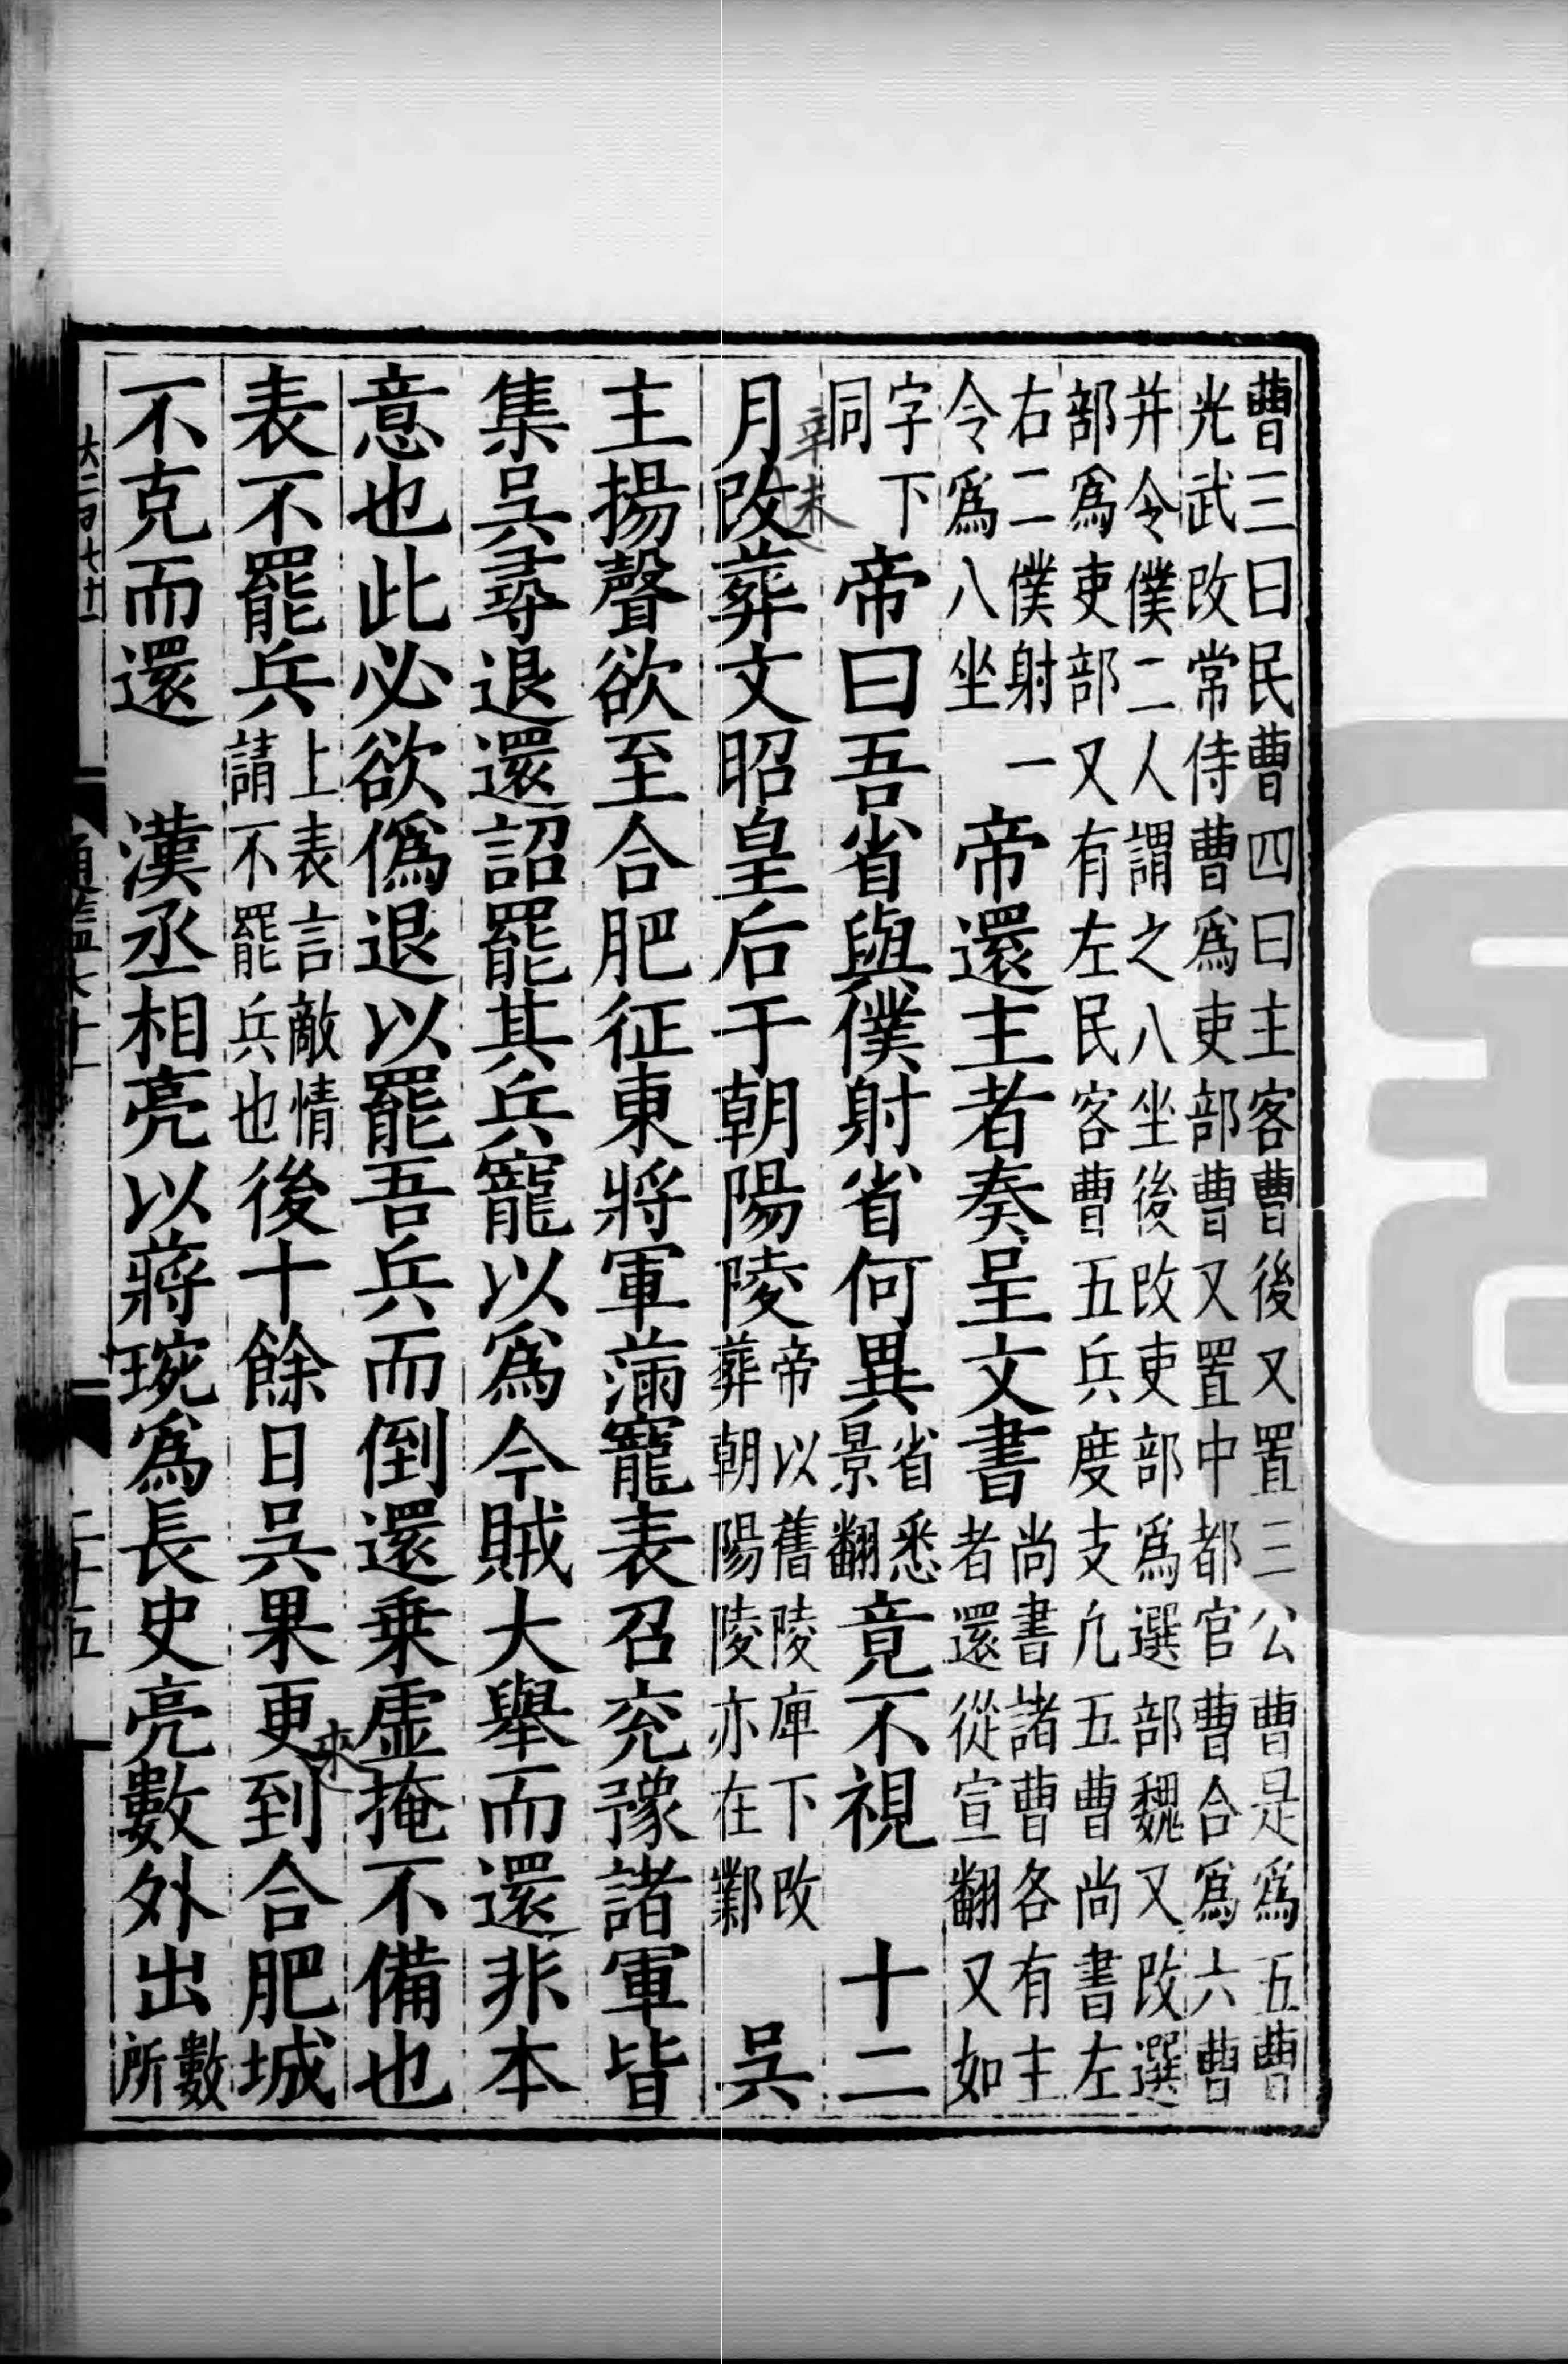 曹三曰民曹四曰主客曹後又置三公曹是爲五曹
光武改常侍曹爲吏部曹又置中都官曹合爲六曹
并令僕二人謂之八坐後改吏部爲選部魏又改選
部爲吏部又有左民客曹五兵度支凡五曹尚書左
右二僕射一
令爲八坐
帝還主者奏呈文書
尚書諸曹各有主
者還從宣翻又如
字下
同
帝曰吾省與僕射省何異
省悉
景翻
竟不視
十二
月改葬文昭皇后于朝陽陵
帝以舊陵庳下改
葬朝陽陵亦在鄴
吳
辛未
主揚聲欲至合肥征東將軍滿寵表召兖豫諸軍皆
集吳尋退還詔罷其兵寵以爲今賊大舉而還非本
意也此必欲僞退以罷吾兵而倒還乗虛掩不備也
表不罷兵
上表言敵情
請不罷兵也
後十餘日吳果更到合肥城
來
不克而還
漢丞相亮以蔣琬爲長史亮數外出
數
所
大三百七十
二十五